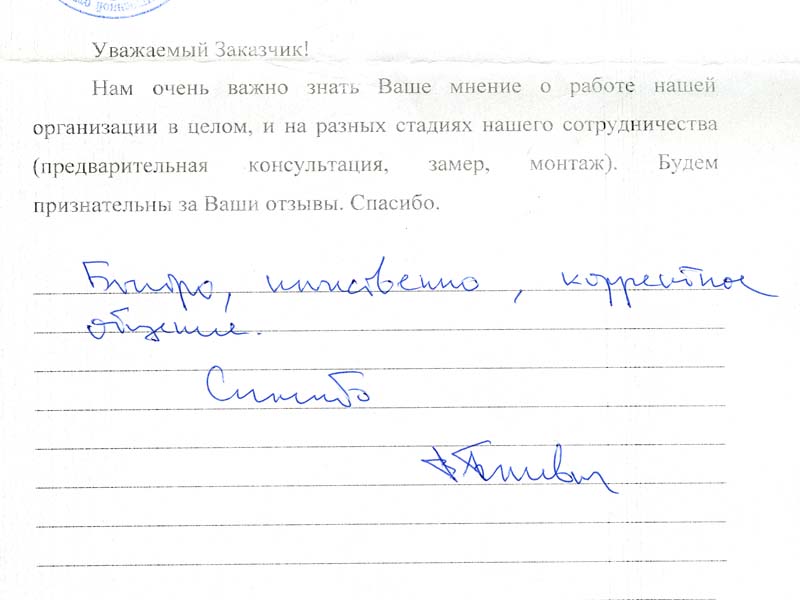 Уважаемый Заказчик!
Нам очень важно знать Ваше мнение о работе нашей
организации в целом, и на разных стадиях нашего сотрудничества
(предварительная консультация, замер, монтаж). Будем
признательны за Ваши отзывы. Спасибо.
Быстро, качественно, корректное
общение.
Спасибо